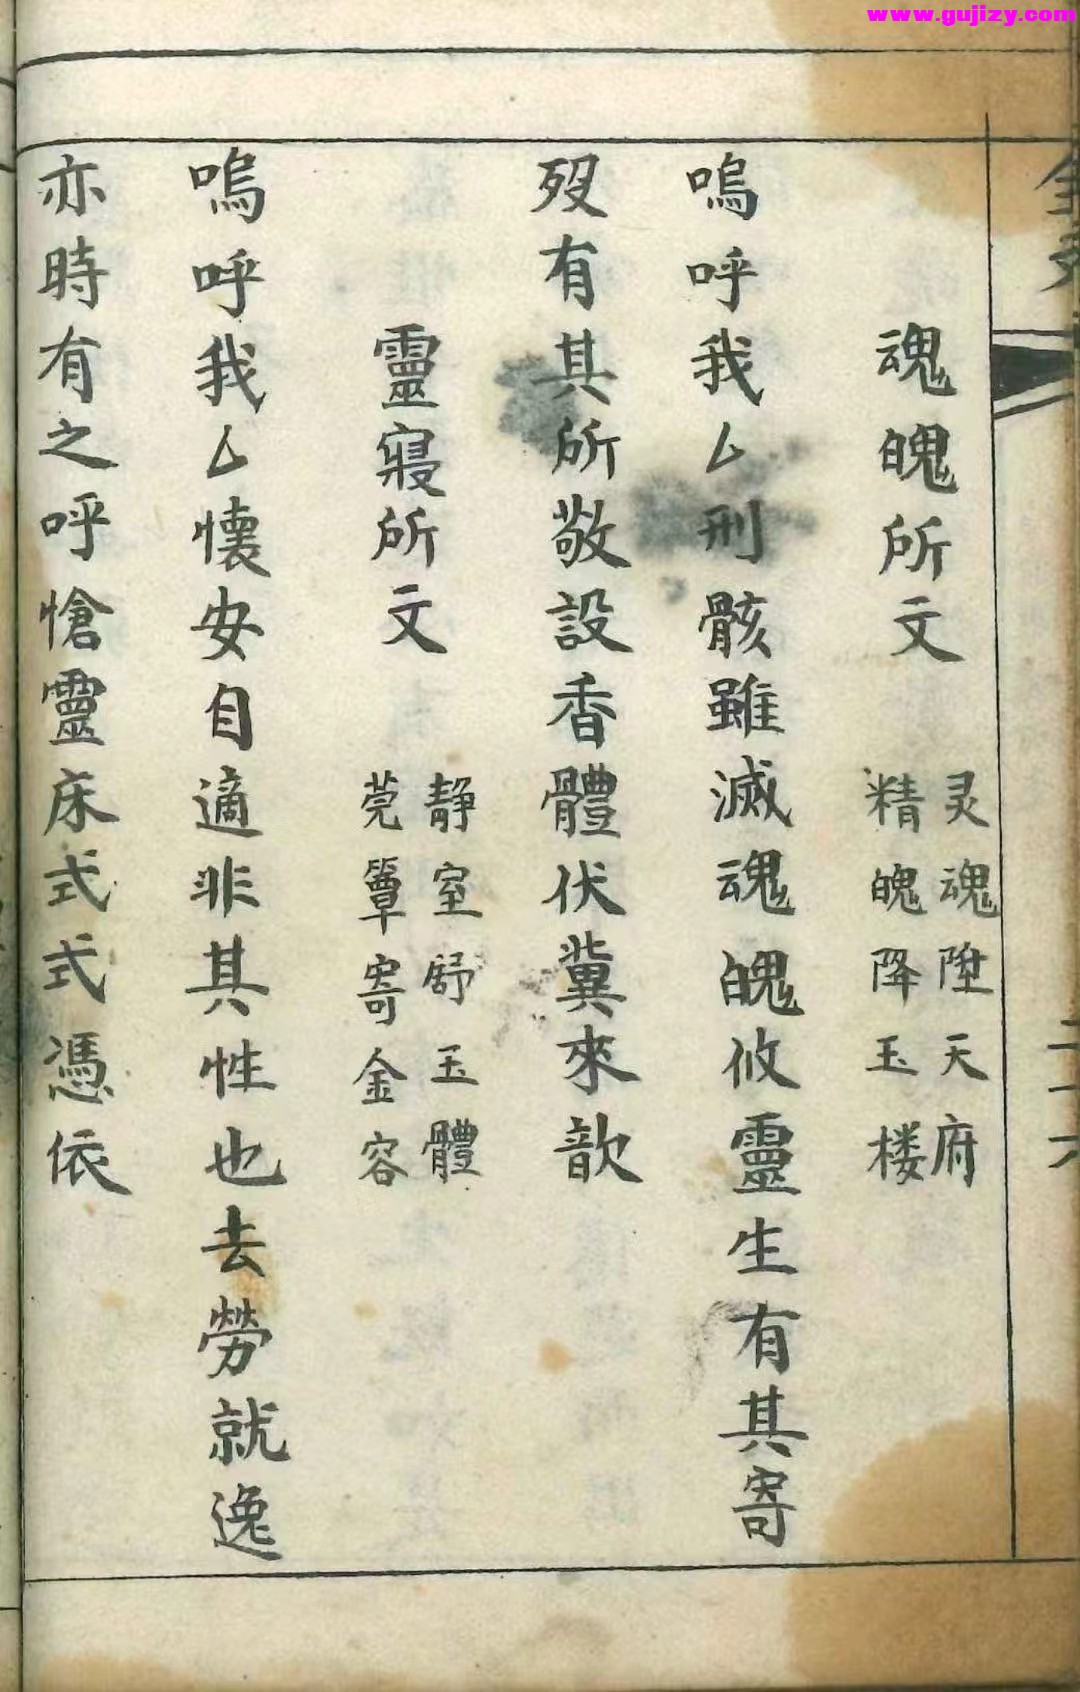 www.gujizy.com
魂魄所文
灵魂陞天府
精魄降玉楼
嗚呼我厶刑骸雖滅魂魄攸靈生有其寄
歿有其所敬設香體伏冀來歆
靈寢所文
静室舒玉體
莞簟寄金容
嗚呼我厶懐安自適非其性也去勞就逸
亦時有之呼愴靈床式式憑依